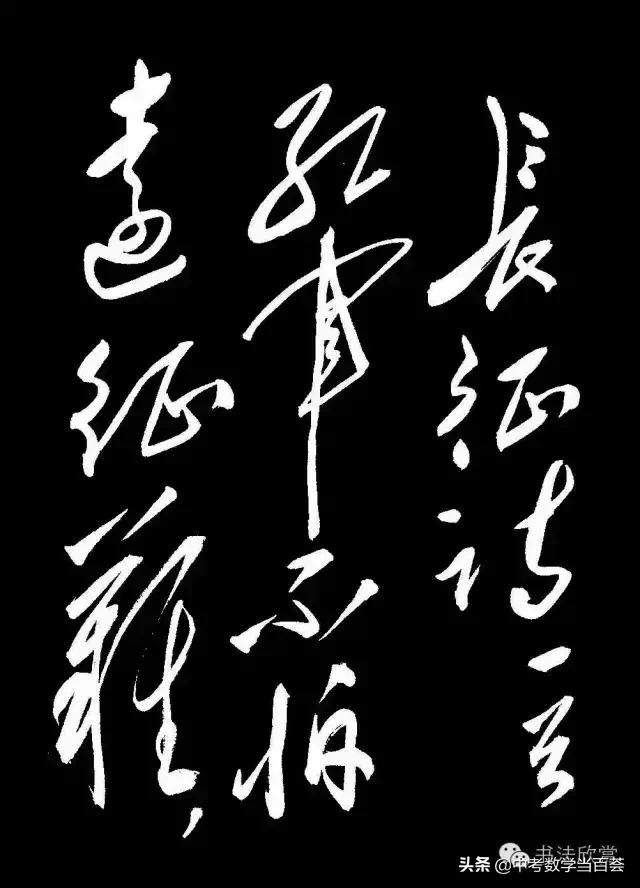 長征詩一首
紅軍不怕
遠征難，
书法欣赏
头条 @中考数学当百荟